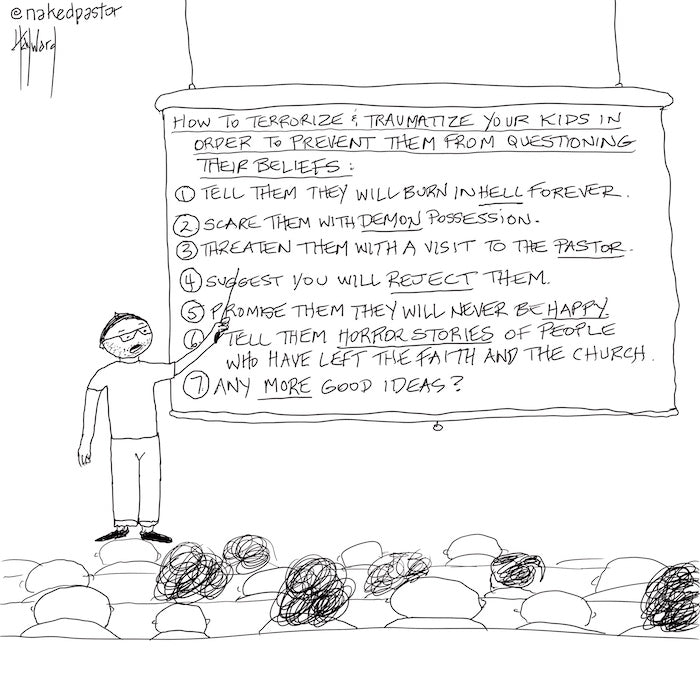 @nakedpastor
Hayward
HOW TO TERRORIZE & TRAUMATIZE YOUR KIDS IN
ORDER TO PREVENT THEM FROM QUESTIONING
THEIR BELIEFS:
① TELL THEM THEY WILL BURN IN HELL FOREVER.
② SCARE THEM WITH DEMON POSSESSION.
③ THREATEN THEM WITH A VISIT TO THE PASTOR.
④ SUGGEST YOU WILL REJECT THEM.
⑤ PROMISE THEM THEY WILL NEVER BE HAPPY.
⑥ TELL THEM HORROR STORIES OF PEOPLE
WHO HAVE LEFT THE FAITH AND THE CHURCH.
⑦ ANY MORE GOOD IDEAS?